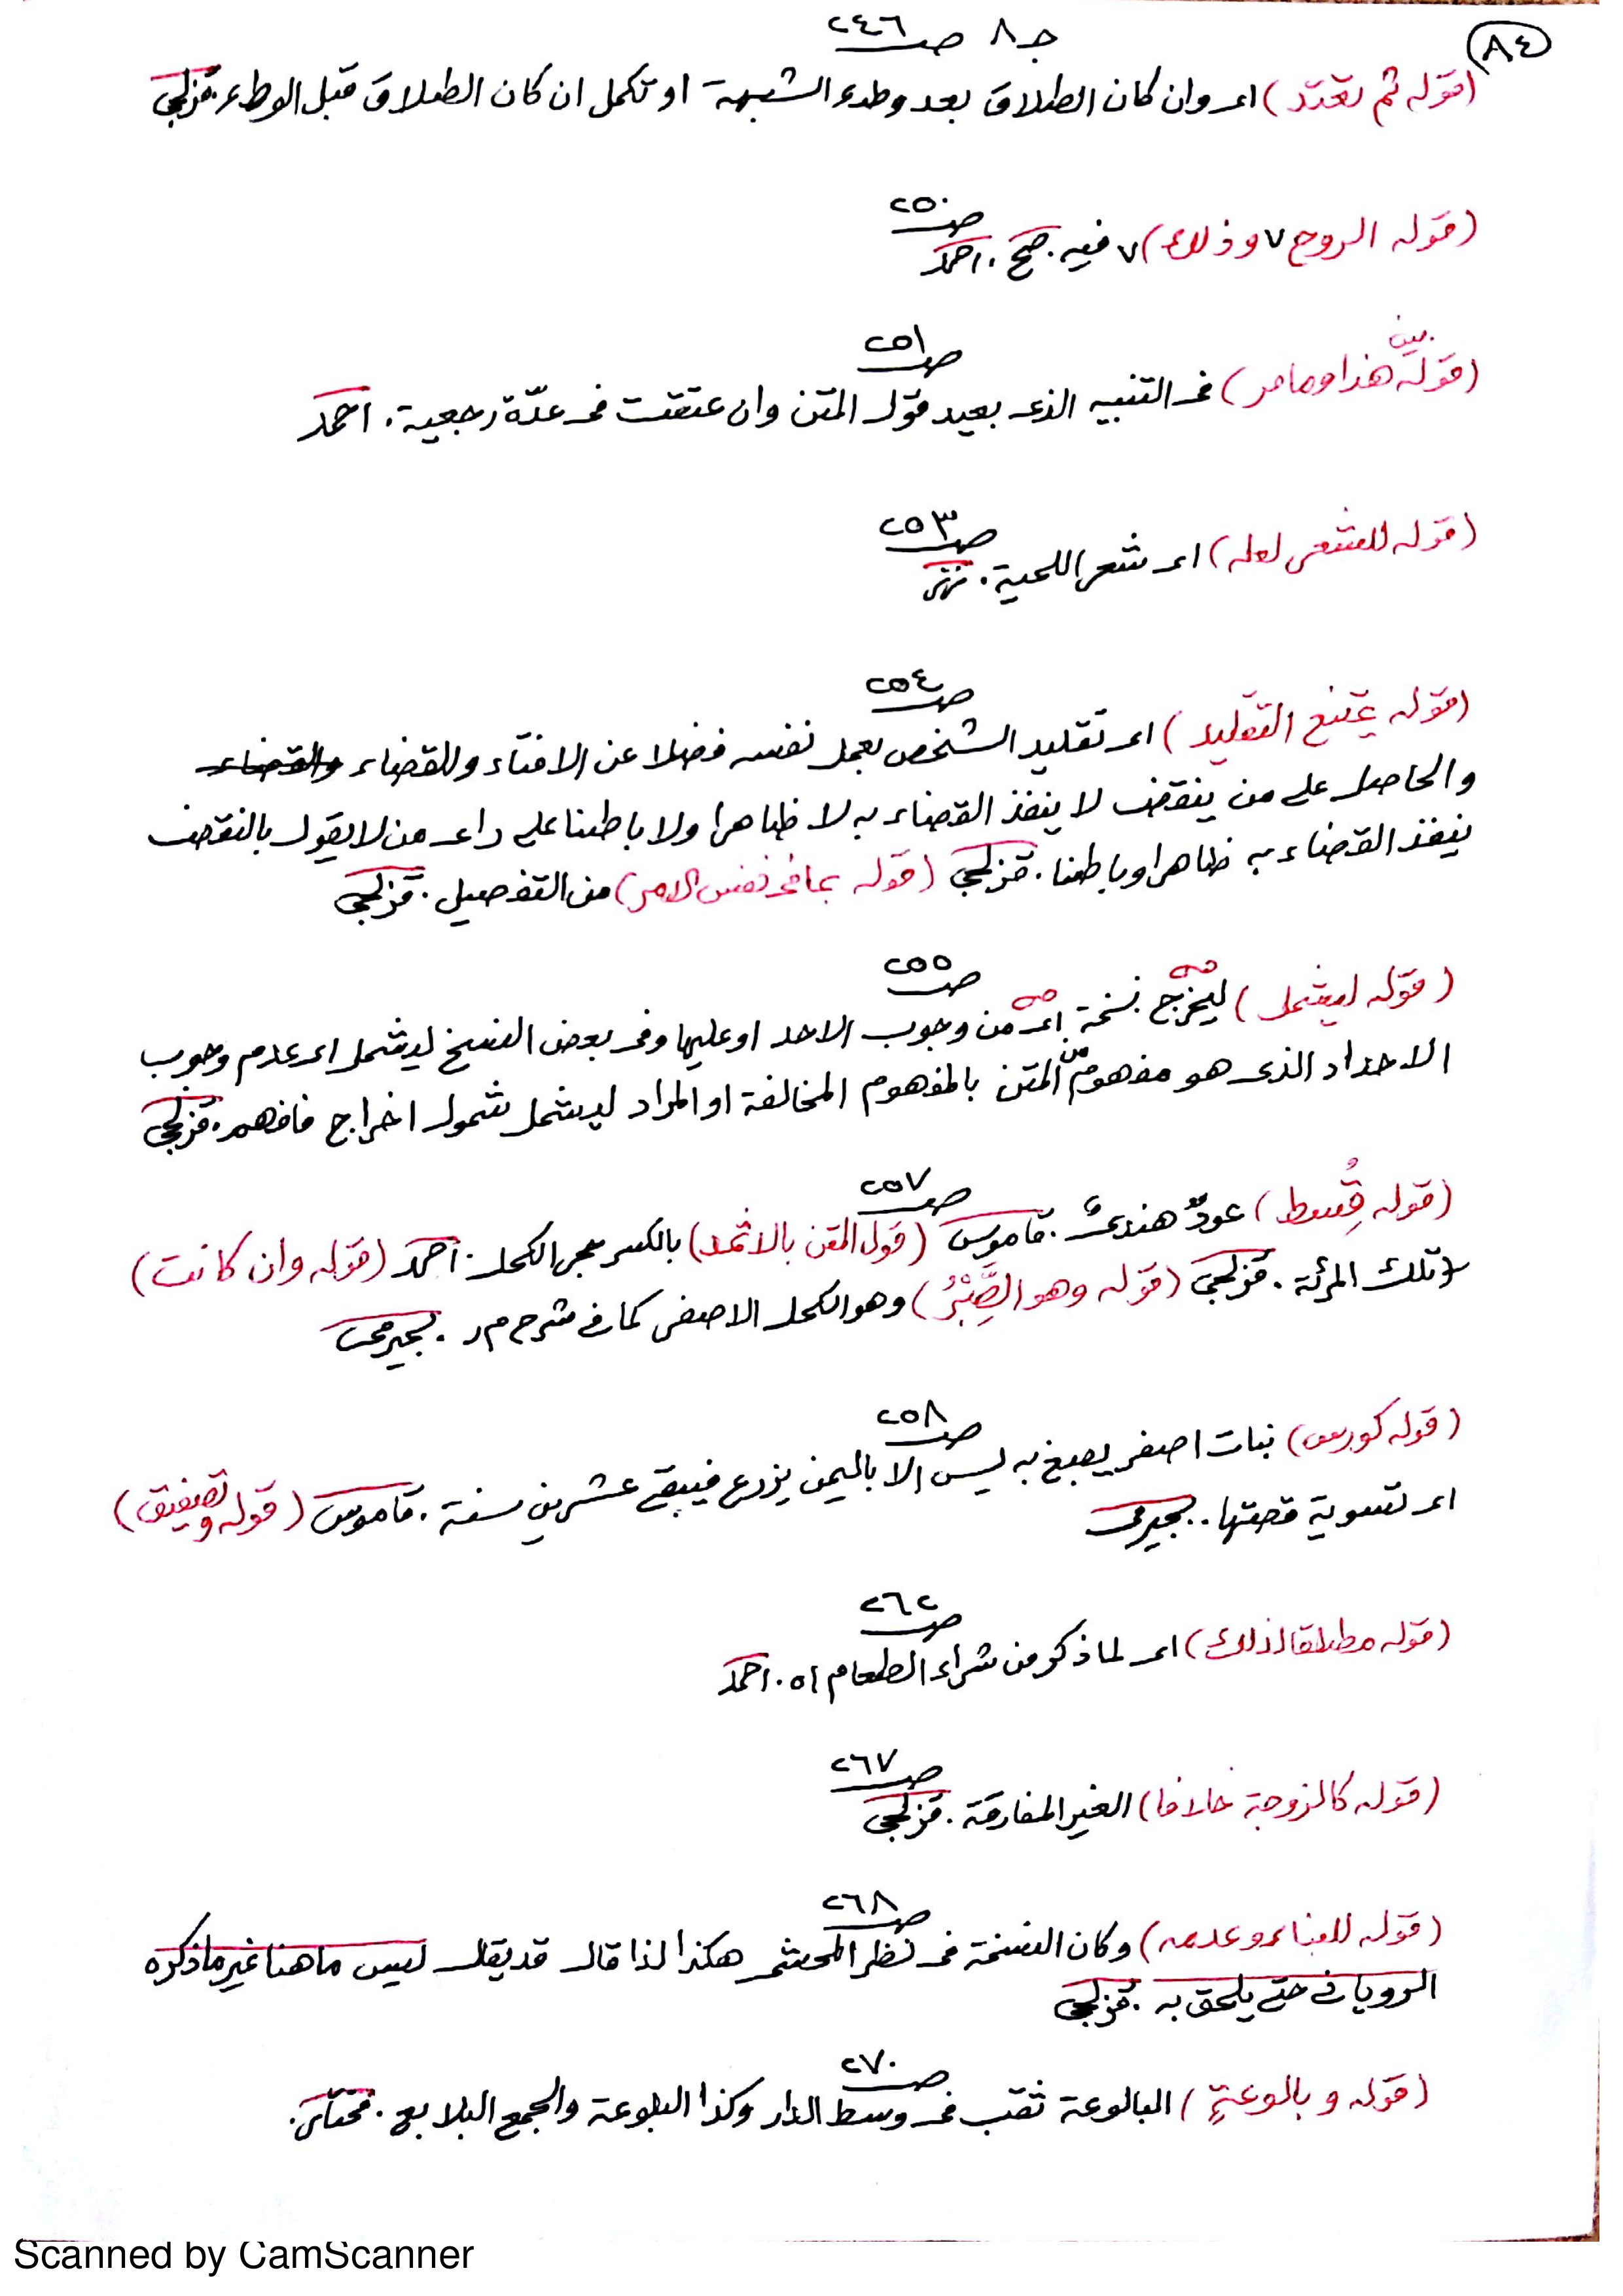 ٨٤
جـ ٨ صـ ٢٤٦
(قوله ثم تعتد) اى وان كان الطلاق بعد وطء الشبهة او تكمل ان كان الطلاق قبل الوطء. قزلجى
صـ ٢٥٠
(قوله الروح ٧ وذلك) ٧ فيه. صح. احمد
صـ ٢٥١
(قوله بين هذا وما مر) فى التنبيه الذى بعيد قول المتن وان عتقت فى عدّة رجعية. احمد
صـ ٢٥٣
(قوله للشعر لعله) اى شعر اللحية.
صـ ٢٥٤
(قوله يمتنع التقليد) اى تقليد الشخص بعمل نفسه فضلا عن الافتاء وللقضاء والقضاء
والحاصل على من ينقض لا ينفذ القضاء به لا ظاهرا ولا باطنا على راى من لا يقول بالنقض
ينفذ القضاء به ظاهرا وباطنا. قزلجى (قوله بما فى نفس الامر) من التفصيل. قزلجى
صـ ٢٥٥
(قوله ليشمل) ليخرج نسخة اى من وجوب الاحد او عليها وفى بعض النسخ ليشمل اى عدم وجوب
الاحداد الذى هو مفهوم من المتن بالمفهوم المخالفة او المراد ليشمل شمول اخراج فافهم. قزلجى
صـ ٢٥٧
(قوله قُِسط) عودٌ هندىٌ. قاموس (قول المتن بالاثمد) بالكسر حجر الكحل. احمد (قوله وان كانت)
تلك المرئة. قزلجى (قوله وهو الصَّبِْرُ) وهو الكحل الاصفر كما فى شرح م ر. بجيرمى
صـ ٢٥٨
(قوله كورس) نبات اصفر يصبغ به ليس الا باليمن يزرع فيبقى عشرين سنة. قاموس (قوله وتصفيق)
اى تسوية قصتها.. بجيرمى
صـ ٢٦٢
(قوله مطلقا لذلك) اى لما ذكر من شراء الطعام اه. احمد
صـ ٢٦٧
(قوله كالزوجة خلافا) الغير المفارقة. قزلجى
صـ ٢٦٨
(قوله للبناء وعدمه) وكان النسخة فى نظر المحشى هكذا لذا قال قد يقال ليس ما هنا غير ما ذكره
الرويانى حتى يلحق به. قزلجى
صـ ٢٧٠
(قوله وبالوعةٍ) البالوعة ثقب فى وسط الدار وكذا البلوعة والجمع البلاليع. مختار.
Scanned by CamScanner